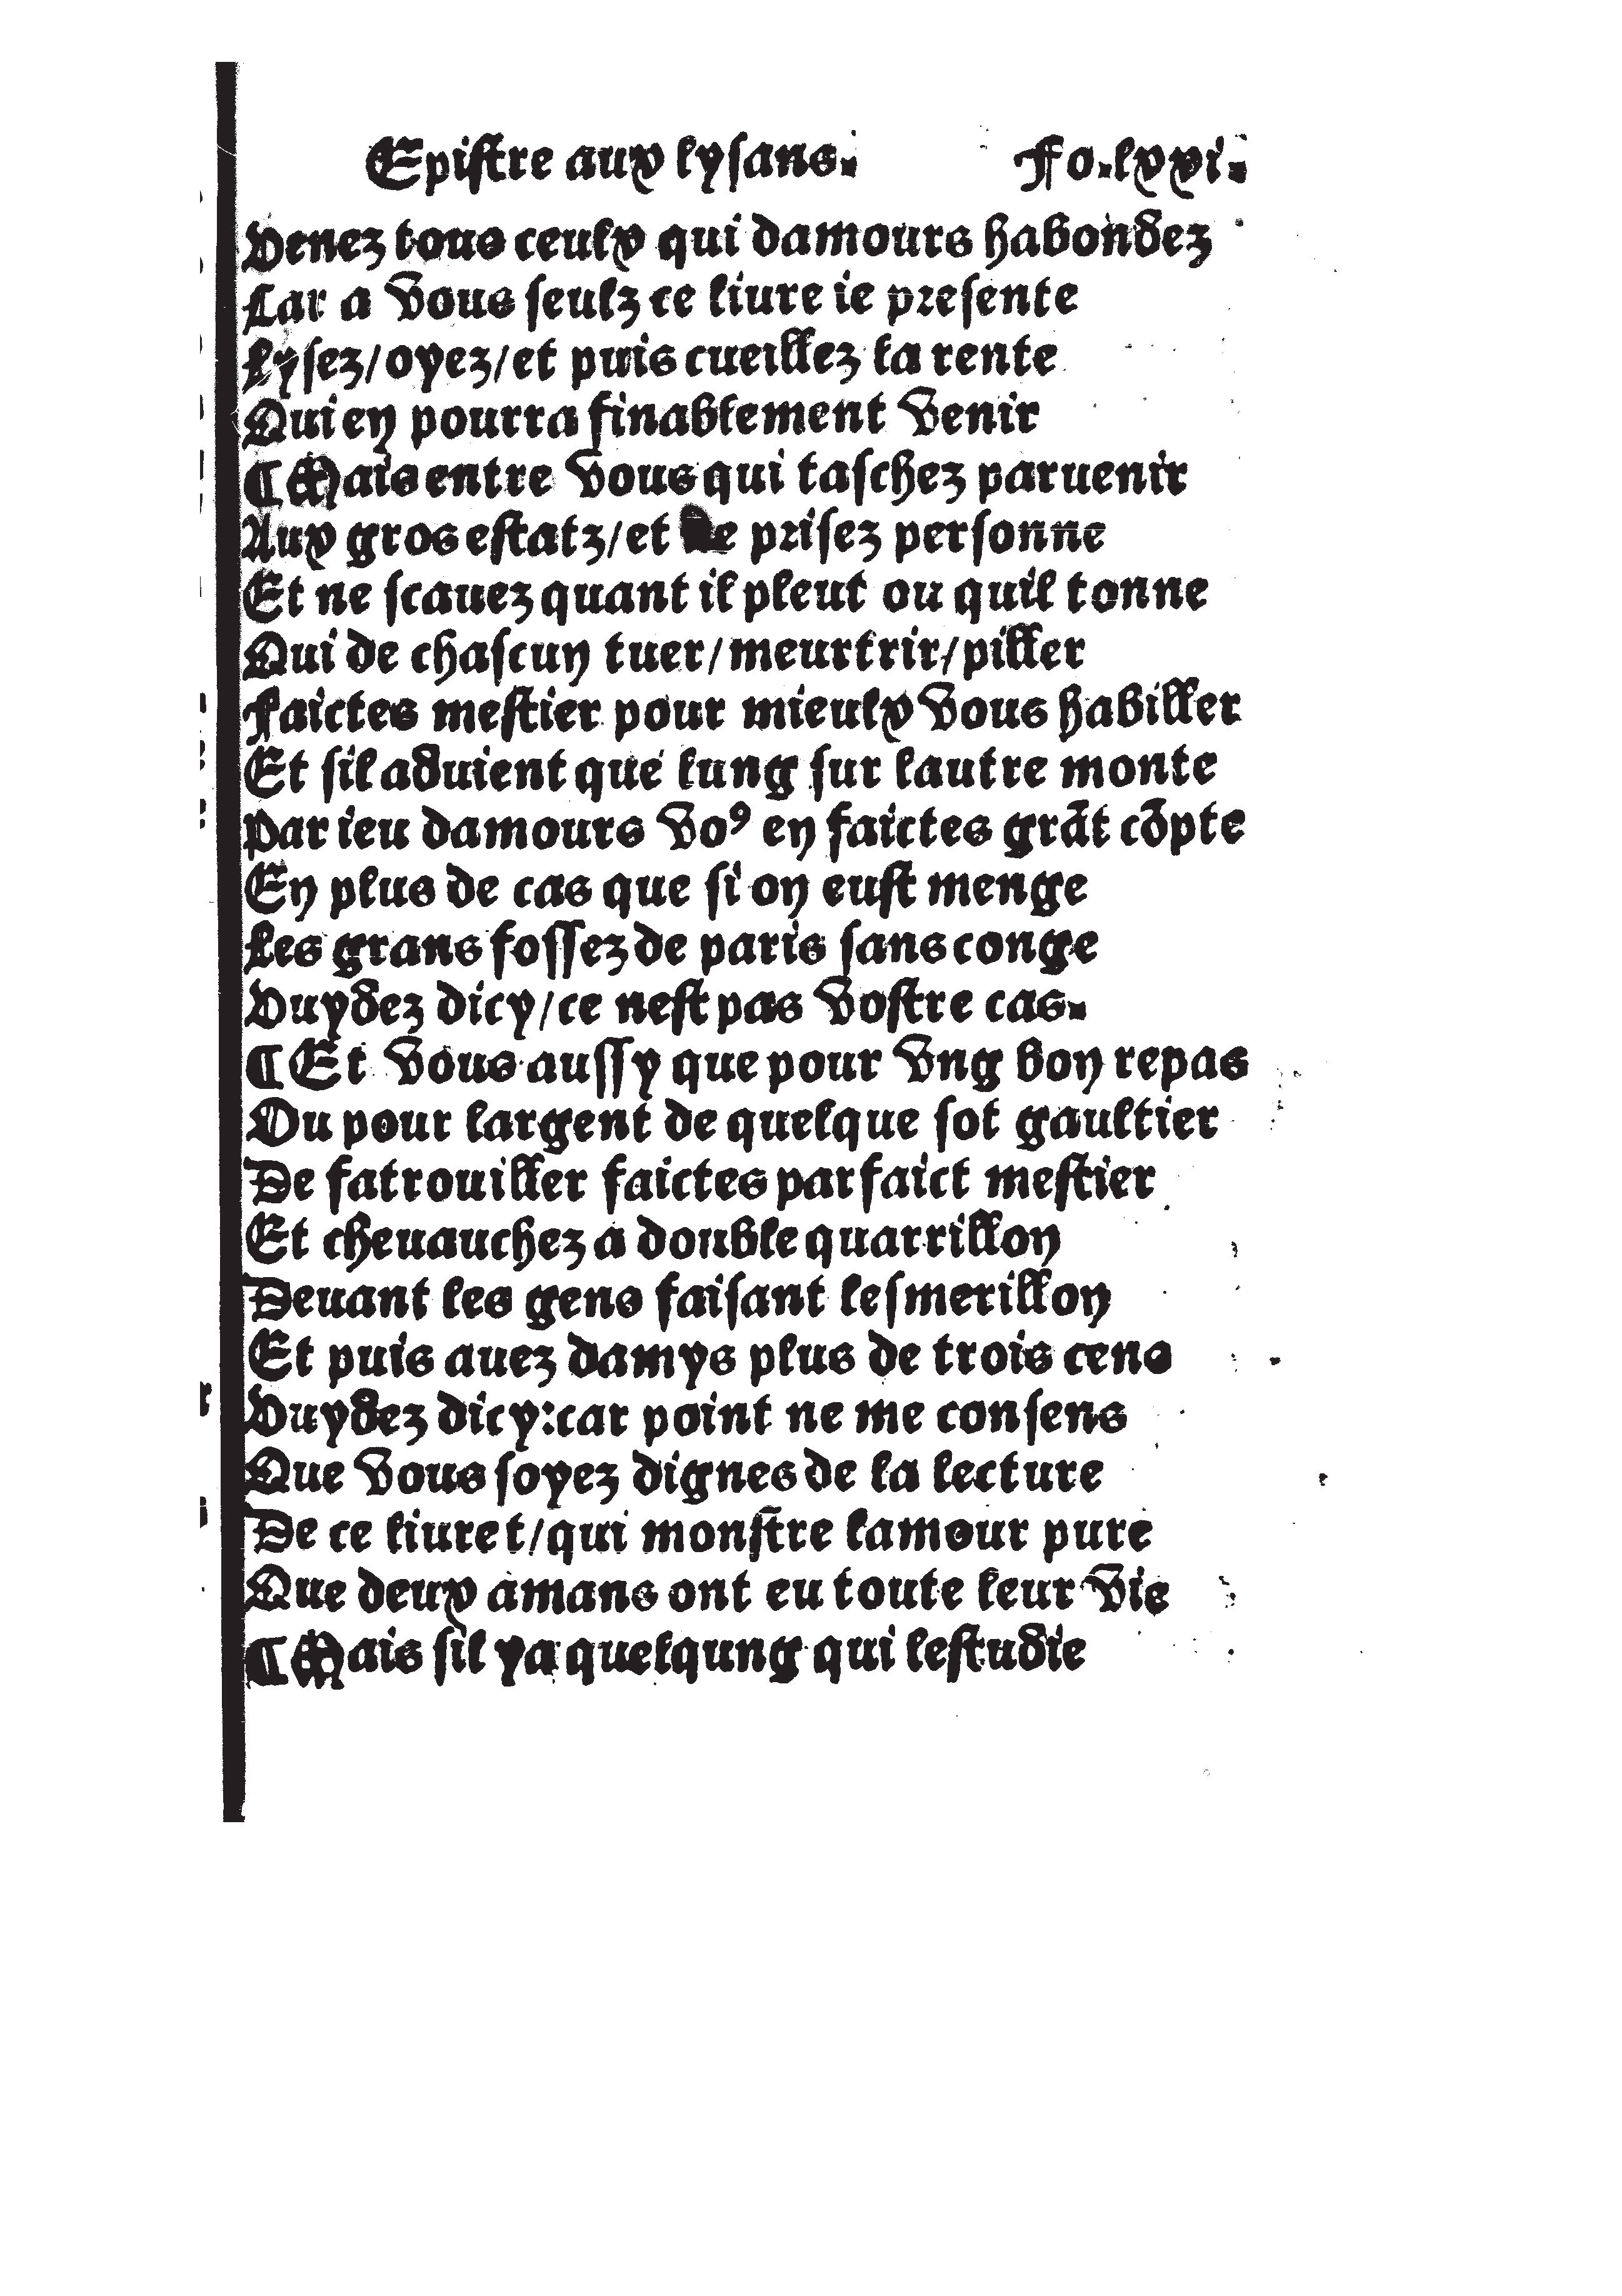 Epiſtre aux lyſans. Fo.lxxi.
Venez tous ceulx qui damours habondez
Car a vous ſeulz ce liure ie preſente
Lyſez/oyez/et puis cueillez la rente
Qui en pourra finablement venir
¶Mais entre vous qui taſchez paruenir
Aux gros eſtatz/et ne priſez perſonne
Et ne ſcauez quant il pleut ou quil tonne
Qui de chaſcun tuer/meurtrir/piller
Faictes meſtier pour mieulx vous habiller
Et ſil aduient que lung ſur lautre monte
Par ieu damours voꝰ en faictes grãt cõpte
En plus de cas que ſi on euſt menge
Les grans foſſez de paris ſans conge
Vuydez dicy/ce neſt pas voſtre cas.
¶Et vous auſſy que pour vng bon repas
Ou pour largent de quelque ſot gaultier
De fatrouiller faictes parfaict meſtier
Et cheuauchez a double quarrillon
Deuant les gens faiſant leſmerillon
Et puis auez damys plus de trois cens
Vuydez dicy:car point ne me conſens
Que vous ſoyez dignes de la lecture
De ce liuret/qui monſtre lamour pure
Que deux amans ont eu toute leur vie
¶Mais ſil ya quelqung qui leſtudie